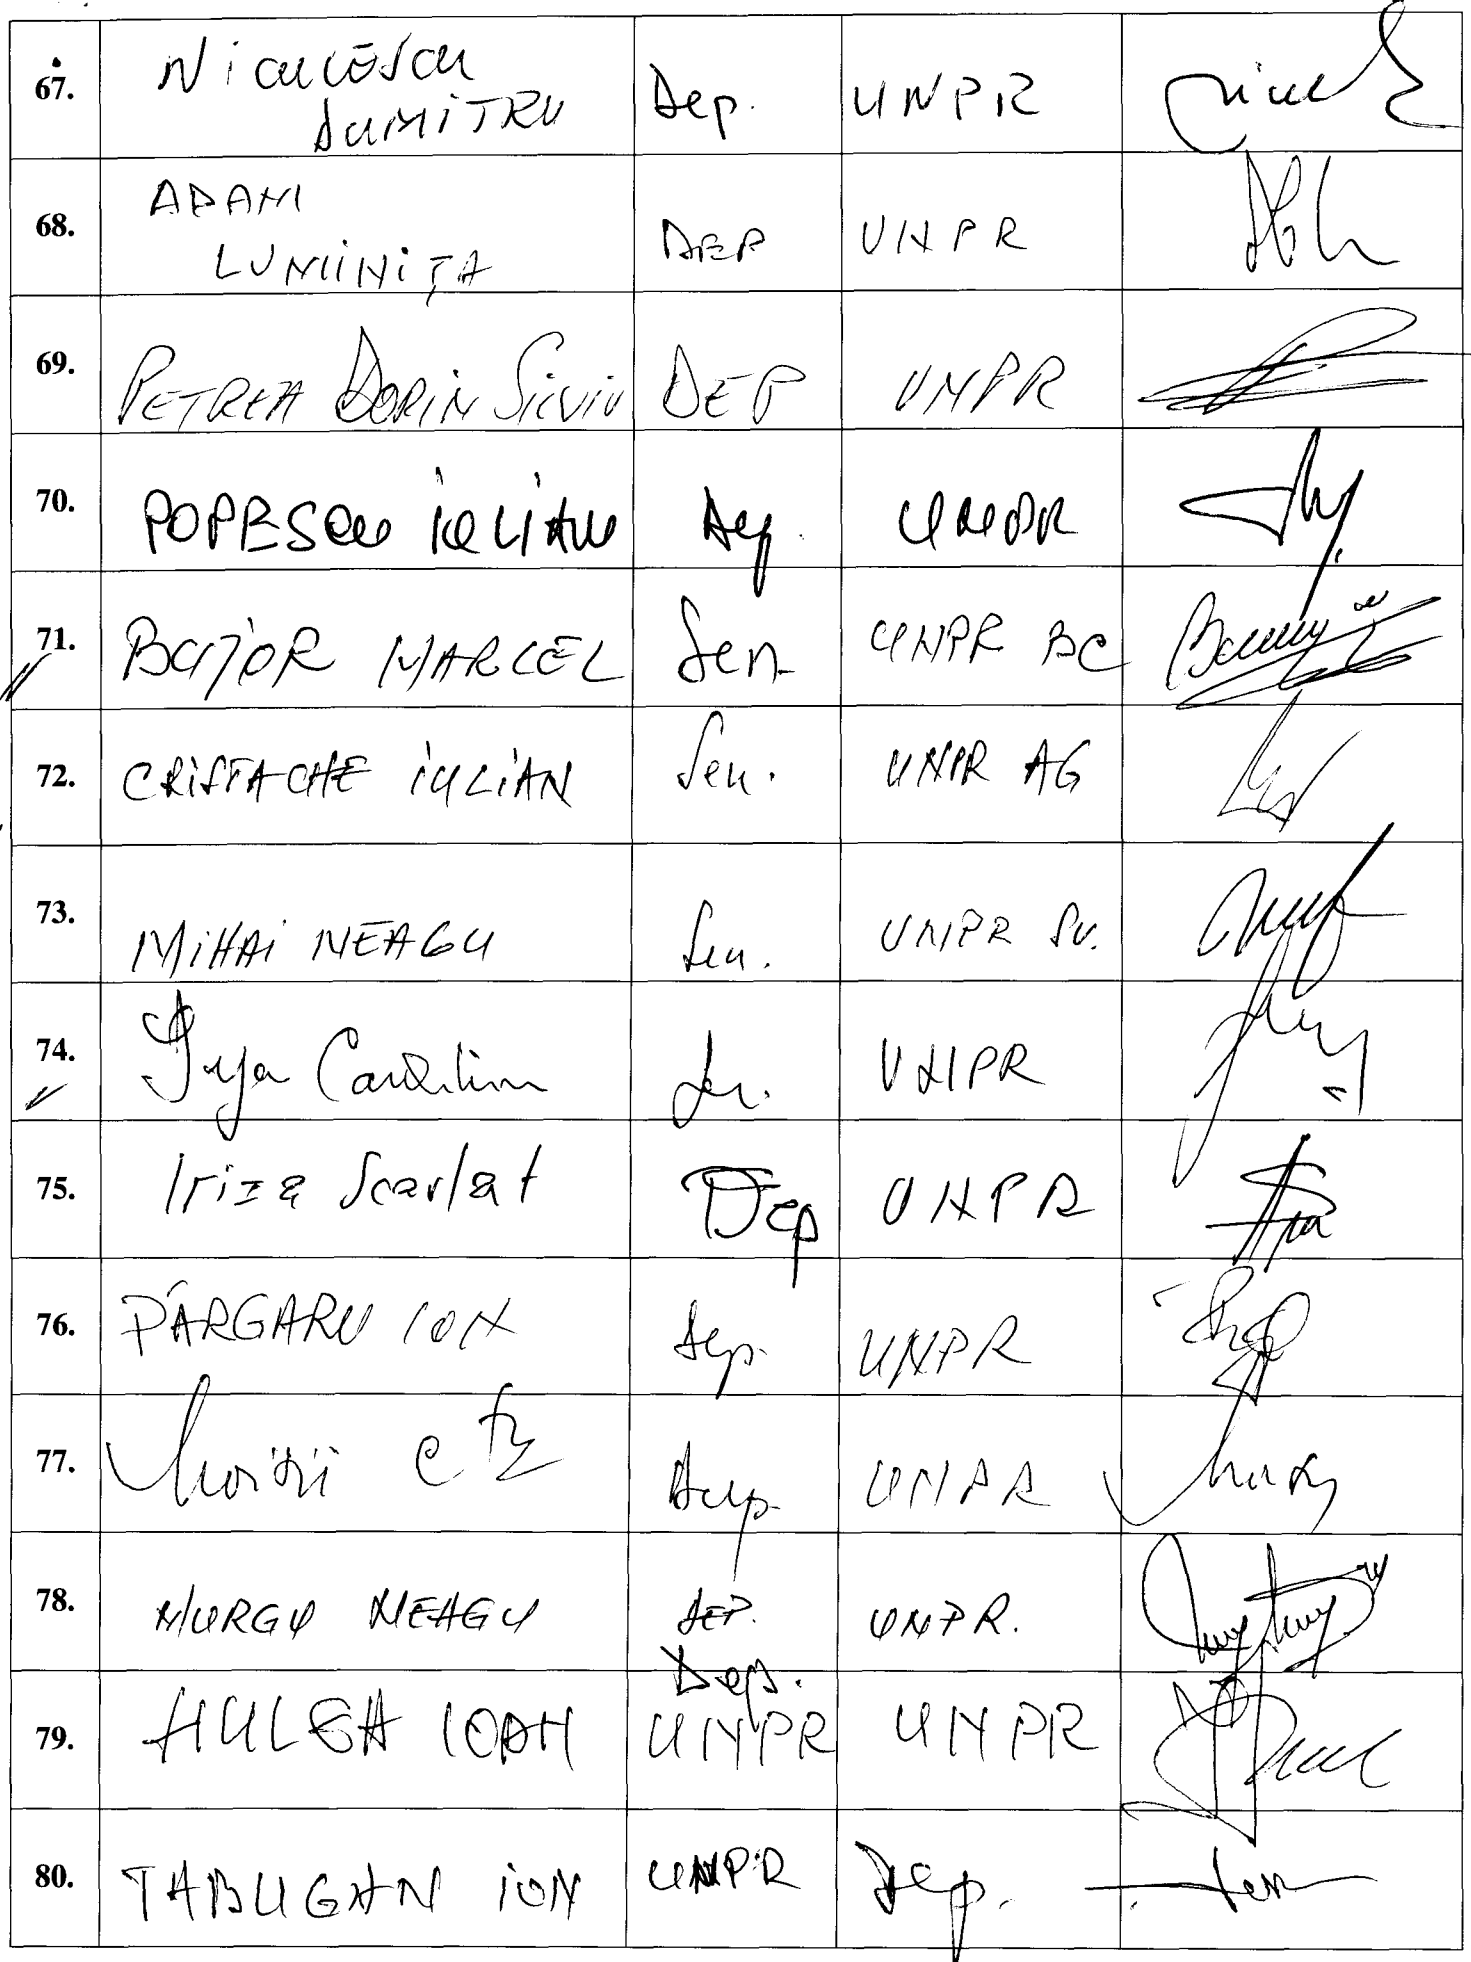 67. NiCULESCU DUMITRU Dep. UNPR
68. ADAM LUMINIȚA DEP UNPR
69. PETREA DORIN SILVIU DEP UNPR
70. POPESCU IULIAN Dep. UNPR
71. BUJOR MARCEL Sen UNPR BC
72. CRISTACHE IULIAN Sen. UNPR AG
73. MIHAI NEAGU Sen. UNPR SV.
74. UNPR
75. Iriza Scarlat Dep UNPR
76. PÂRGARU ION Dep. UNPR
77. Dep UNPR
78. MURGU NEAGU DEP. UNPR.
Dep.
79. HULEA IOAN UNPR UNPR
80. TABUGAN ION UNPR Dep.